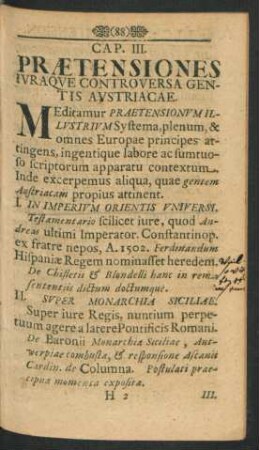 (88)
CAP. III.
PRÆTENSIONES
IVRAQVE CONTROVERSA GEN-
TIS AVSTRIACAE.
MEditamur PRAETENSIONVM IL-
LVSTRIVM Systema, plenum, &
omnes Europae principes at-
tingens, ingentique labore ac sumtuo-
so scriptorum apparatu contextum.
Inde excerpemus aliqua, quae gentem
Austriacam propius attinent.
I. IN IMPERIVM ORIENTIS VNIVERSI,
Testamentario scilicet iure, quod An-
dreas ultimi Imperator. Constantinop.
ex fratre nepos, A. 1502. Ferdinandum
Hispaniæ Regem nominasset heredem.
De Chifletii & Blundelli hanc in rem
sententiis dictum doctumque.
II. SVPER MONARCHIA SICILIAE.
Super iure Regis, nuntium perpe-
tuum agere a latere Pontificis Romani.
De Baronii Monarchia Siciliae, Ant-
werpiae combusta, & responsione Ascanii
Cardin. de Columna. Postulati prae-
cipua momenta exposita.
H 2 III.